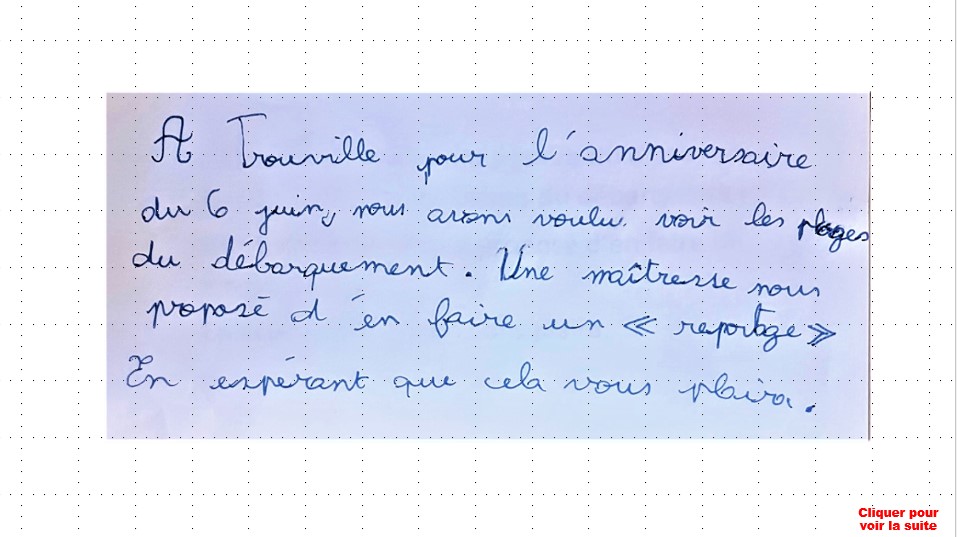 A Trouville pour l'anniversaire
du 6 juin, nous avons voulu voir les plages
du débarquement. Une maîtresse nous
proposé d'en faire un « reportge »
En espérant que cela vous plaira.
Cliquer pour
voir la suite